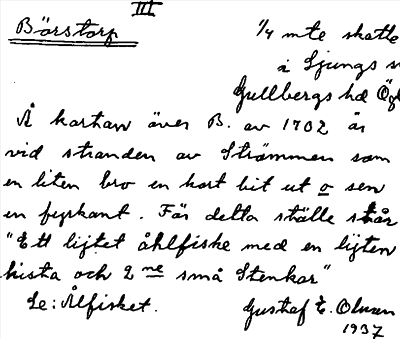 III
Börstorp
1/4 mte skatte
i Ljungs s
Gullbergs hd Ög
Å kartan över B. av 1702 är
vid stranden av Strömmen som
en liten bro en kort bit ut o sen
en fyrkant. För detta ställe står
"Ett lijtet åhlfiske med en lijten
kista och 2 ne små Stenkar"
Se: Ålfisket.
Gustaf E. Olsson
1937